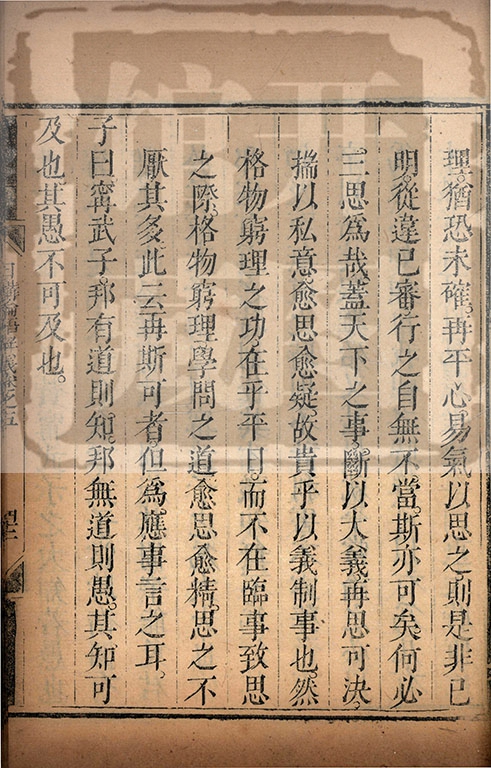 理。猶恐未確。再平心易氣以思之。則是非已
明。從違已審。行之自無不當。斯亦可矣。何必
三思為哉。蓋天下之事。斷以大義。再思可決。
揣以私意。愈思愈疑。故貴乎以義制事也。然
格物窮理之功。在乎平日。而不在臨事致思
之際。格物窮理。學問之道。愈思愈精。思之不
厭其多。此云再斯可者。但為應事言之耳。
子曰。甯武子。邦有道則知。邦無道則愚。其知可
及也。其愚不可及也。
日講論語解義卷之五